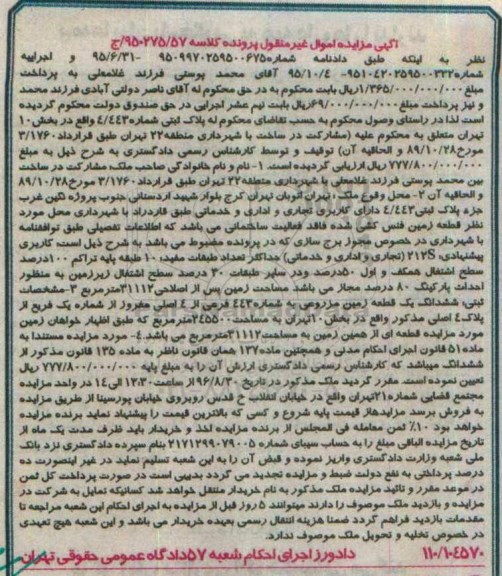 آگهی مزایده اموال غیرمنقول پرونده کلاسه 95۰275/57/ج
نظر به اینکه طبق دادنامه شماره 9509970259500675 -95/6/31 و اجراییه
شماره 9510420259500332- 95/10/4 آقای محمد پوستی فرزند غلامعلی به پرداخت
مبلغ 1/365/000/000/000ریال بابت محکوم به در حق محکوم له آقای ناصر دولتی آبادی فرزند محمد
و نیز پرداخت مبلغ 69/000/000/000ریال بابت نیم عشر اجرایی در حق صندوق دولت محکوم گردیده
است لذا در راستای وصول محکوم به حسب تقاضای محکوم له پلاک ثبتی شماره 4/443 واقع در بخش 10
تهران متعلق به محکوم علیه (مشارکت در ساخت با شهرداری منطقه 22 تهران طبق قرارداد 3/1760
مورخ 89/10/28 و الحاقیه آن) توقیف و توسط کارشناس رسمی دادگستری به شرح ذیل به مبلغ
777/800/000/000 ریال ارزیابی گردیده است. 1- نام و نام خانوادگی صاحب ملک مشارکت در ساخت
بین محمد پوستی فرزند غلامعلی با شهرداری منطقه 22 تهران طبق قرارداد 3/1760 مورخ 89/10/28
و الحاقیه آن 2- محل وقوع ملک تهران اتوبان تهران کرج بلوار شهید اردستانی جنوب پروژه نگین غرب
جزء پلاک ثبتی 4/443 دارای کاربری تجاری و اداری و خدماتی طبق قرارداد با شهرداری محل مورد
نظر قطعه زمین فنس کشی شده فاقد فعالیت ساختمانی می باشد که اطلاعات تفصیلی طبق توافقنامه
با شهرداری در خصوص مجوز برج سازی که در پرونده مضبوط می باشد به شرح ذیل است: کاربری
پیشنهادی: S212 (تجاری و اداری و خدماتی) حداکثر تعداد طبقات مفید: 10 طبقه پایه تراکم 100درصد
سطح اشتغال همکف و اول 50درصد ودر سایر طبقات 30 درصد سطح اشتغال زیرزمین به منظور
احداث پارکینگ 80 درصد مجاز می باشد مساحت زمین پس از اصلاحی 31112مترمربع 3-مشخصات
ثبتی: ششدانگ یک قطعه زمین مزروعی به شماره 443 فرعی از 4 اصلی مفروز از شماره یک فرع از
پلاک 4 اصلی مذکور واقع در بخش 10 تهران به مساحت 245500مترمربع که طبق اظهار خواهان زمین
مورد مزایده قطعه ای از همین زمین به مساحت 31112مترمربع می باشد.4- مورد مزایده مستندا به
ماده 51 قانون اجرای احکام مدنی و همچنین ماده 137 همان قانون ناظر به ماده 135 قانون مذکور از
ششدانگ میباشد که کارشناس رسمی دادگستری ارزش آن را به مبلغ پایه 777/800/000/000 ریال
تعیین نموده است. مقرر گردید ملک مذکور در تاریخ 96/8/30 از ساعت 13:30 الی 14 در واحد مزایده
مجتمع قضایی شماره 21تهران واقع در خیابان انقلاب خ قدس روبروی خیابان پورسینا از طریق مزایده
به فروش برسد مزایدهاز قیمت پایه شروع و کسی که بالاترین قیمت را پیشنهاد نماید برنده مزایده
خواهد بود 10% ثمن معامله فی المجلس از برنده مزایده اخذ و خریدار باید ظرف مدت یک ماه از
تاریخ مزایده الباقی مبلغ را به حساب سیبای شماره 2171299079005 بنام سپرده دادگستری نزد بانک
ملی شعبه وزارت دادگستری واریز نموده و قبض آن را به این شعبه تسلیم نماید در غیر اینصورت ده
درصد پرداختی به نفع دولت ضبط و مزایده تجدید می گردد بدیهی است در صورت پرداخت کل ثمن
در موعد مقرر و تائید مزایده ملک مذکور به نام خریدار منتقل خواهد شد کسانیکه تمایل به شرکت در
مزایده و بازدید ملک موصوف را دارند میتوانند 5 روز قبل از مزایده به اجرای احکام این شعبه مراجعه تا
مقدمات بازدید فراهم گردد ضمنا هزینه انتقال رسمی بعهده خریدار می باشد و این شعبه هیچ تعهدی
در خصوص تخلیه و تحویل ملک موصوف ندارد.
110/104570 دادورز اجرای احکام شعبه 57دادگاه عمومی حقوقی تهران